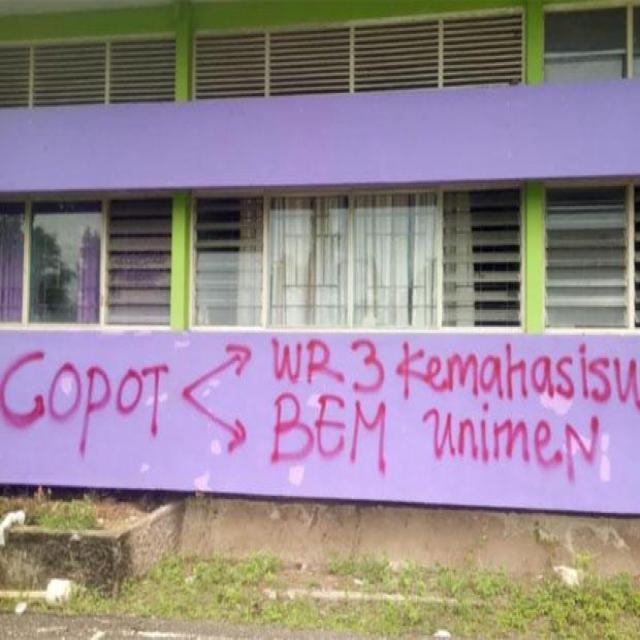 COPOT
WR 3 Kemahasisw
BEM unimeN